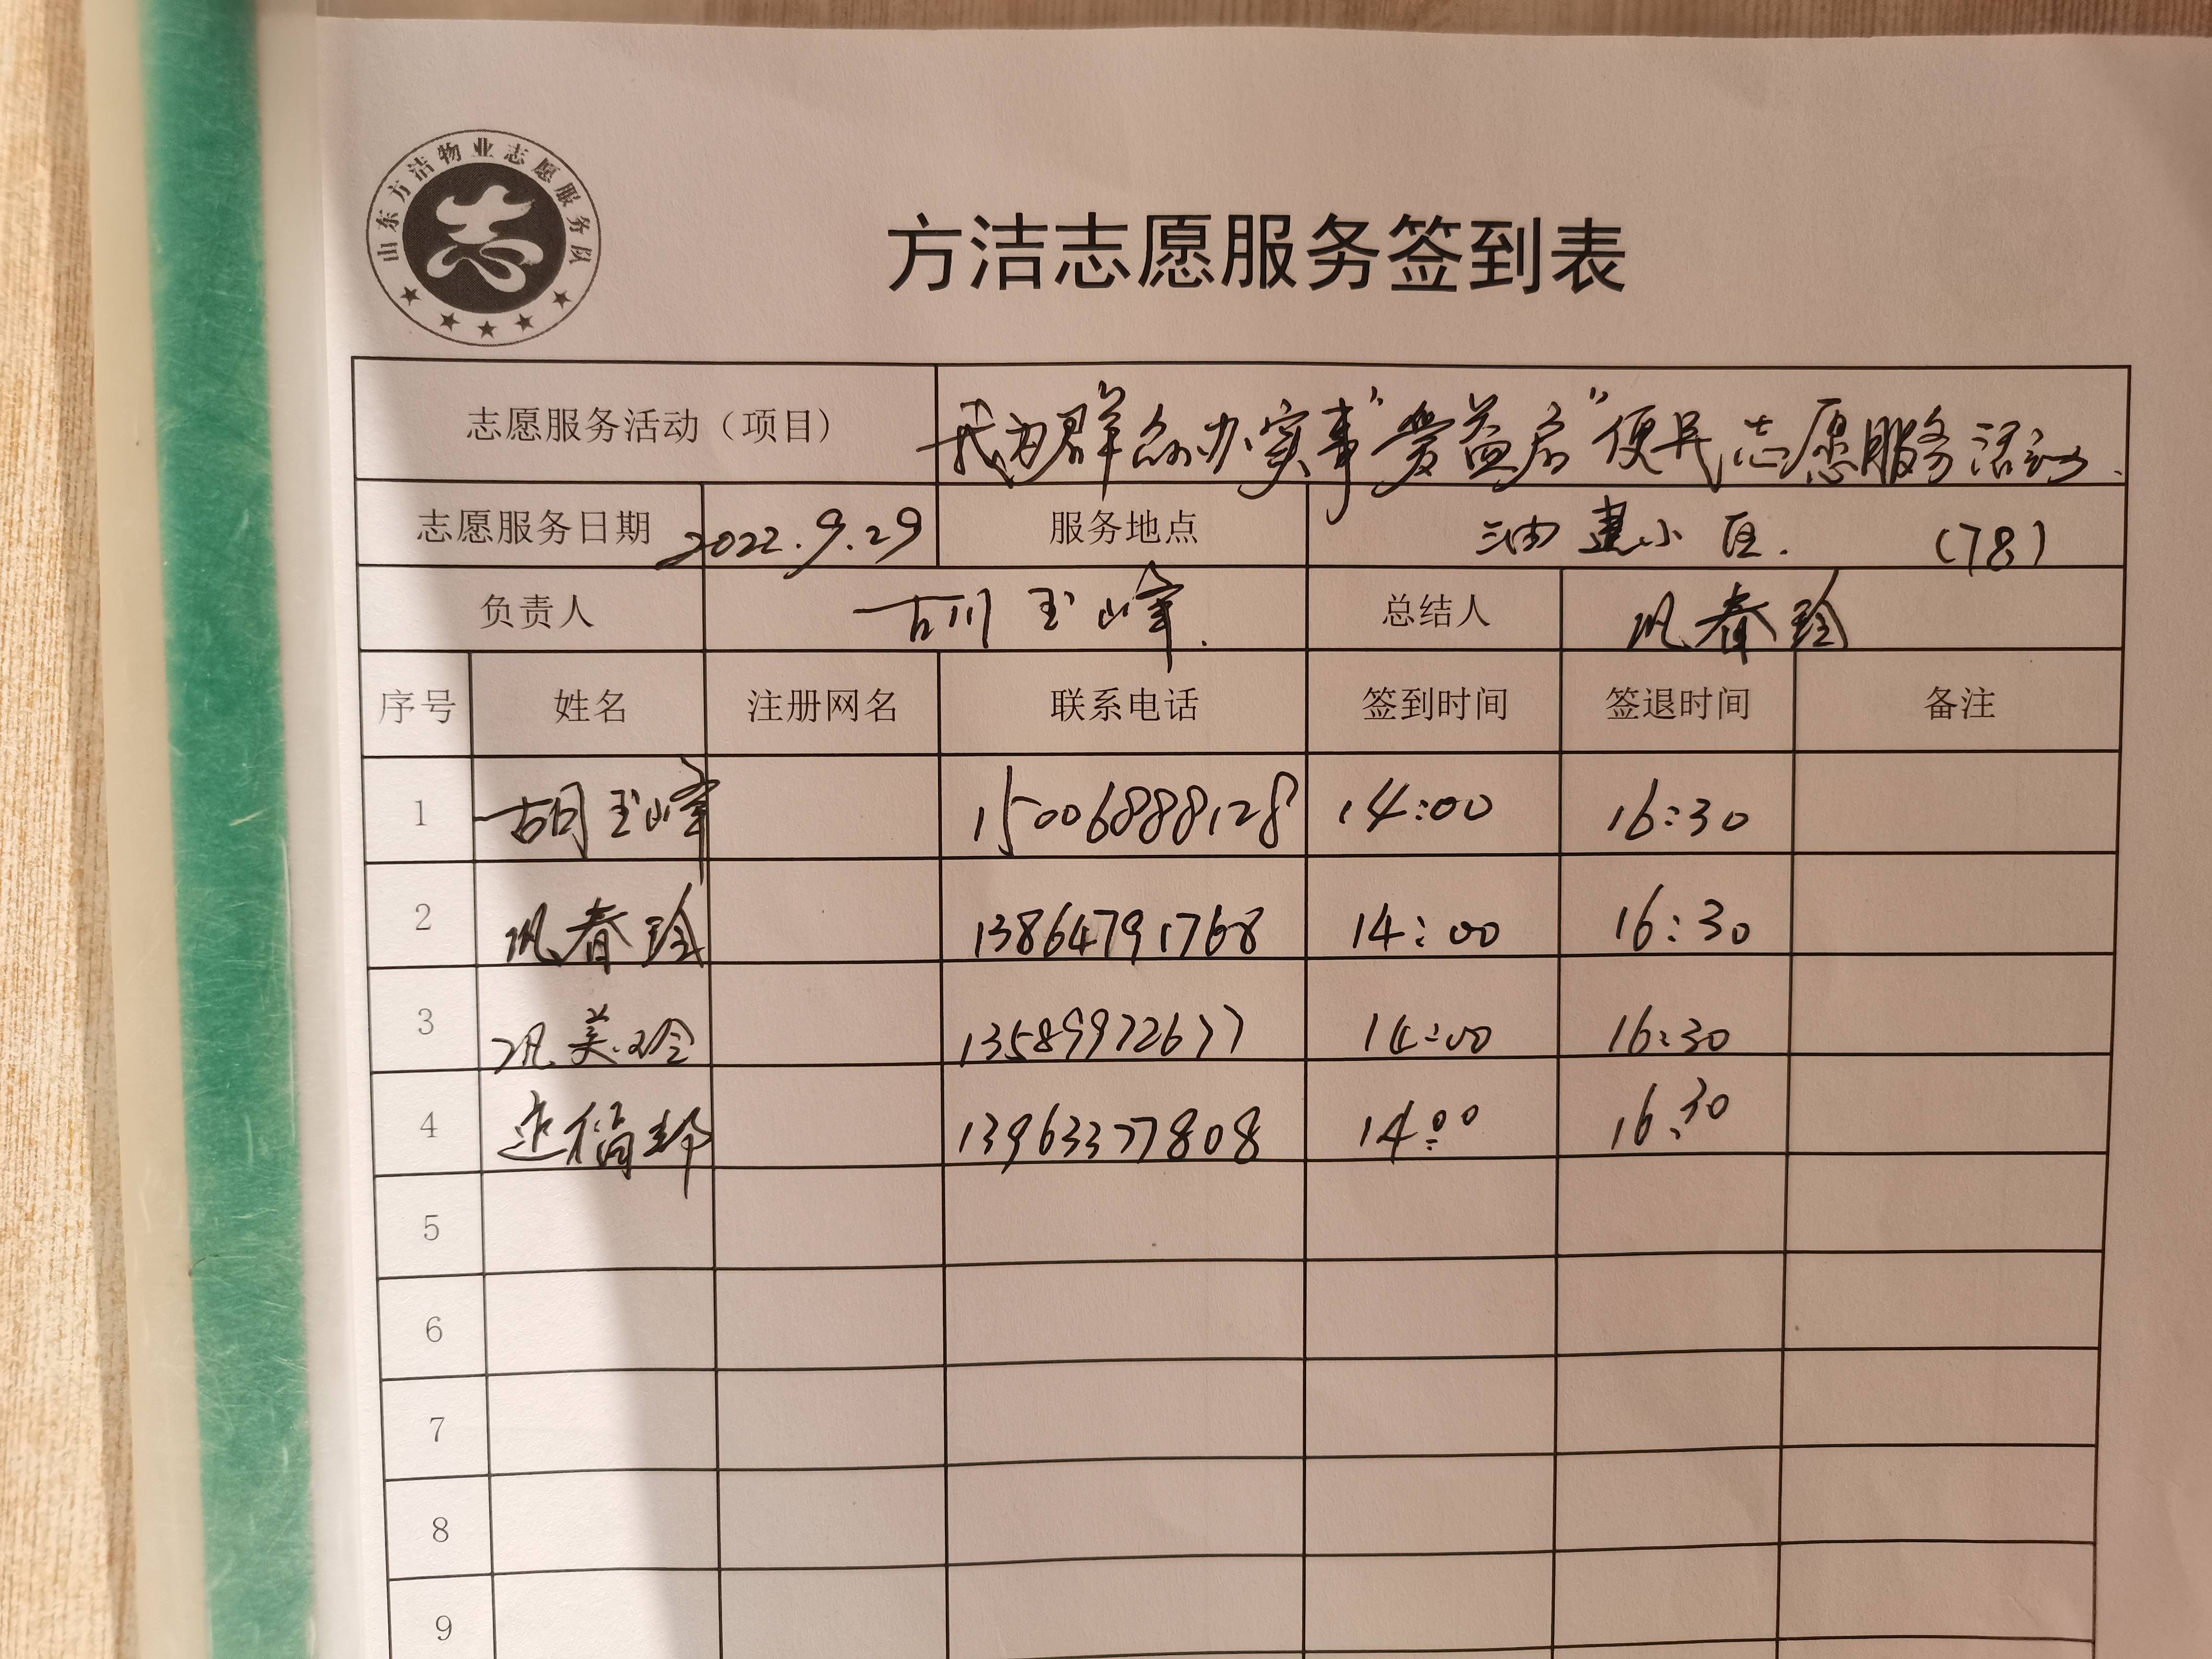 山东方洁物业志愿服务队
志
方洁志愿服务签到表
志愿服务活动（项目） 我为群众办实事"爱益家"便民志愿服务活动.
志愿服务日期 2022.9.29 服务地点 油建小区. (78)
负责人 胡玉峰. 总结人 巩春玲
序号 姓名 注册网名 联系电话 签到时间 签退时间 备注
1 胡玉峰 15006888128 14:00 16:30
2 巩春玲 13864791768 14:00 16:30
3 巩美玲 13589972677 14:00 16:30
4 13963377808 14:00 16:30
5
6
7
8
9